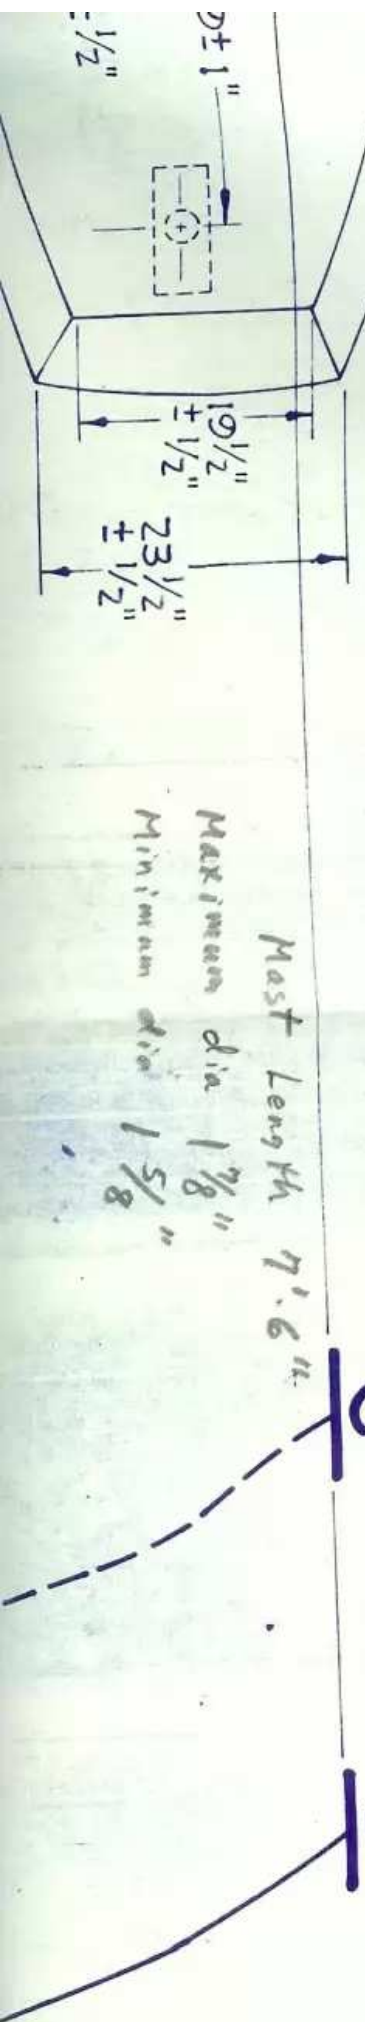 ± 1"
1/2"
19 1/2"
± 1/2"
23 1/2"
± 1/2"
Mast Length 7'.6"
Maximum dia 1 7/8"
Minimum dia 1 5/8"